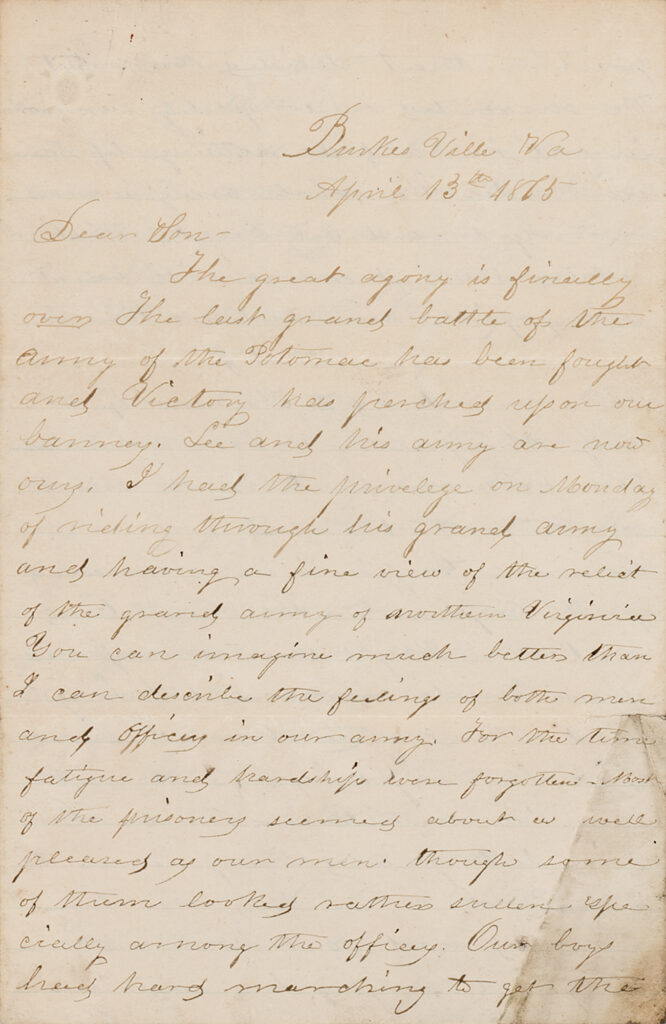 Burkes Ville Va
April 13th 1865
Dear Son-
The great agony is finally
over The last grand battle of the
army of the Potomac has been fought
and Victory has perched upon our
banners. Lee and his army are now
ours. I had the privelege on Monday
of riding through his grand army
and having a fine view of the relict
of the grand army of northern Virginia
You can imagine much better than
I can describe the feelings of both men
and officers in our army. For the time
fatigue and hardship were forgotten - Most
of the prisoners seemed about as well
pleased as our men. though some
of them looked rather sullen espe
cially among the officers. Our boys
had hard marching to get the